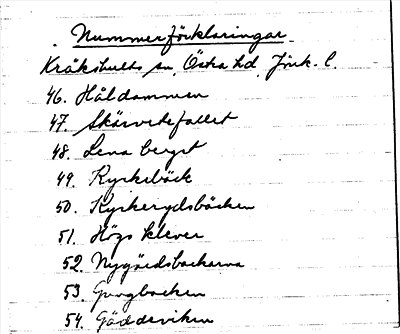 Nummerförklaringar
Kråkshults sn, Östra hd, Jönk. l.
46. Håldammen
47. Skärvetefallet
48. Lena berget
49. Kyrkebäck
50. Kyrkerydsbäcken
51. Högs klever
52. Nygärdsbackarna
53. Gungbacken
54. Gäddeviken